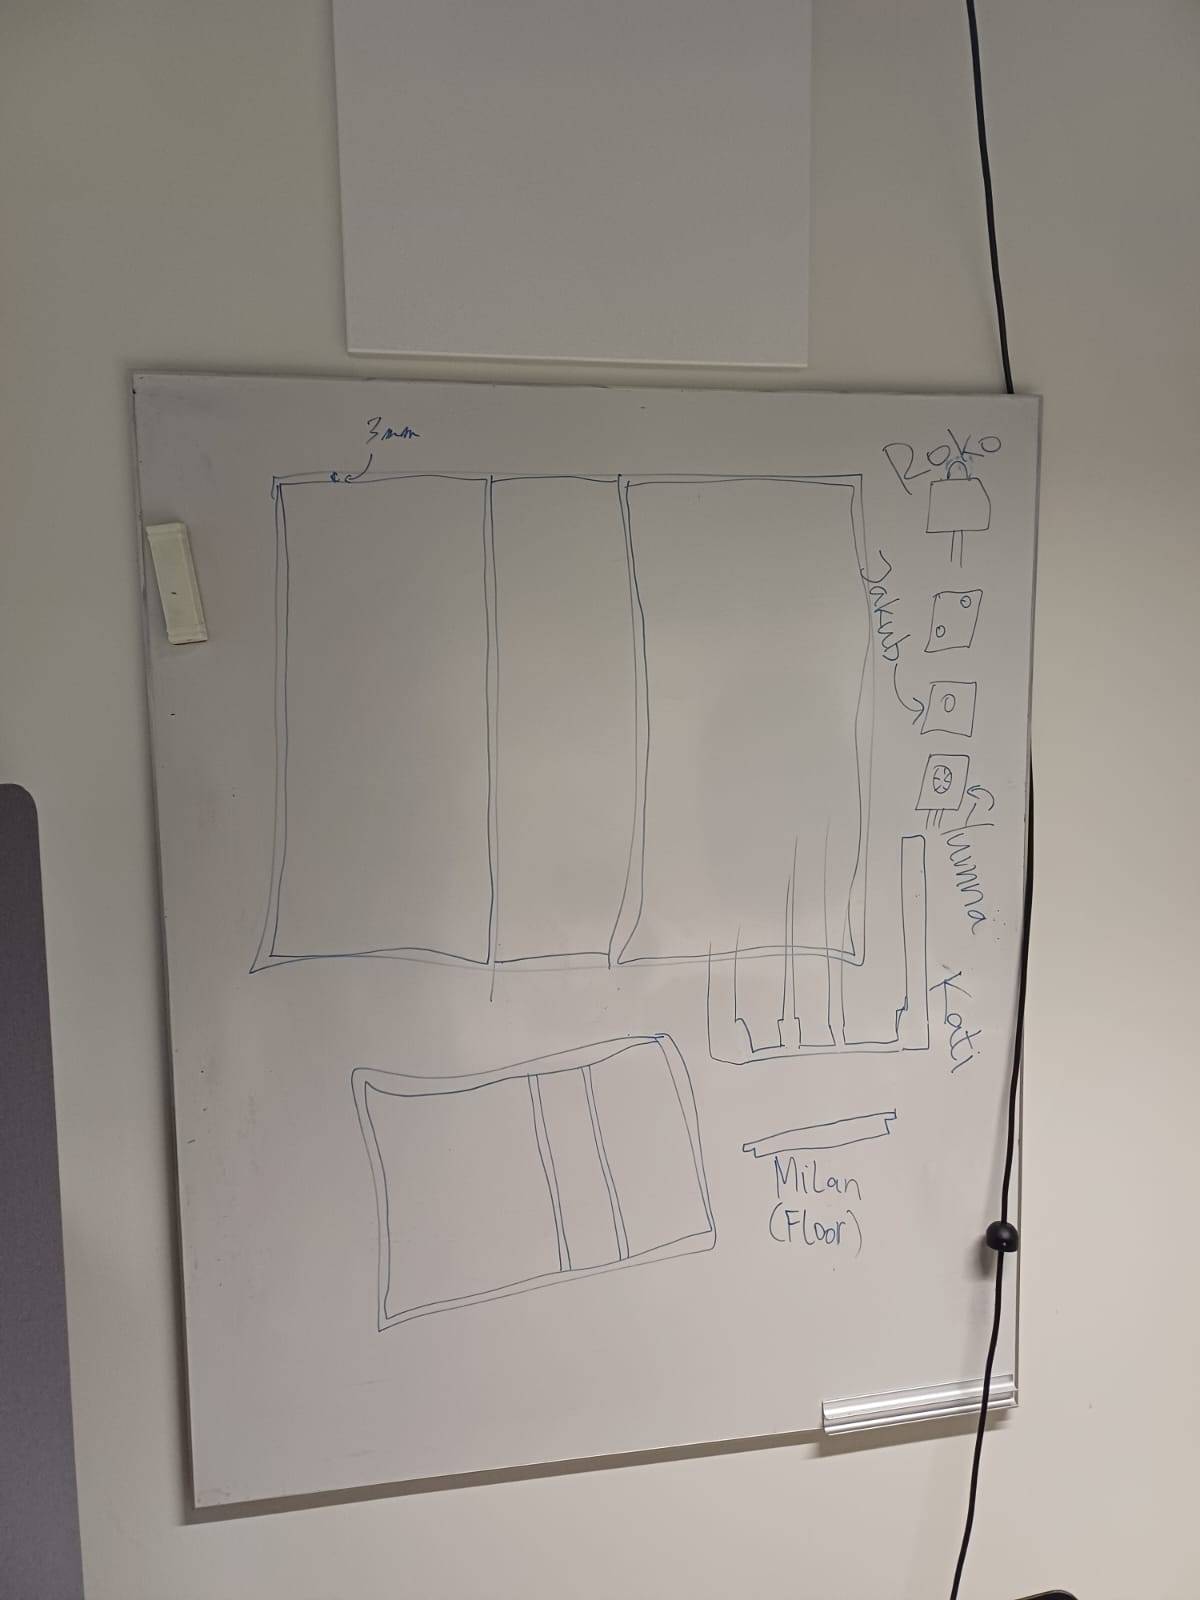 3mm
Roko
Jakub
Yumna
Kati
Milan
(Floor)